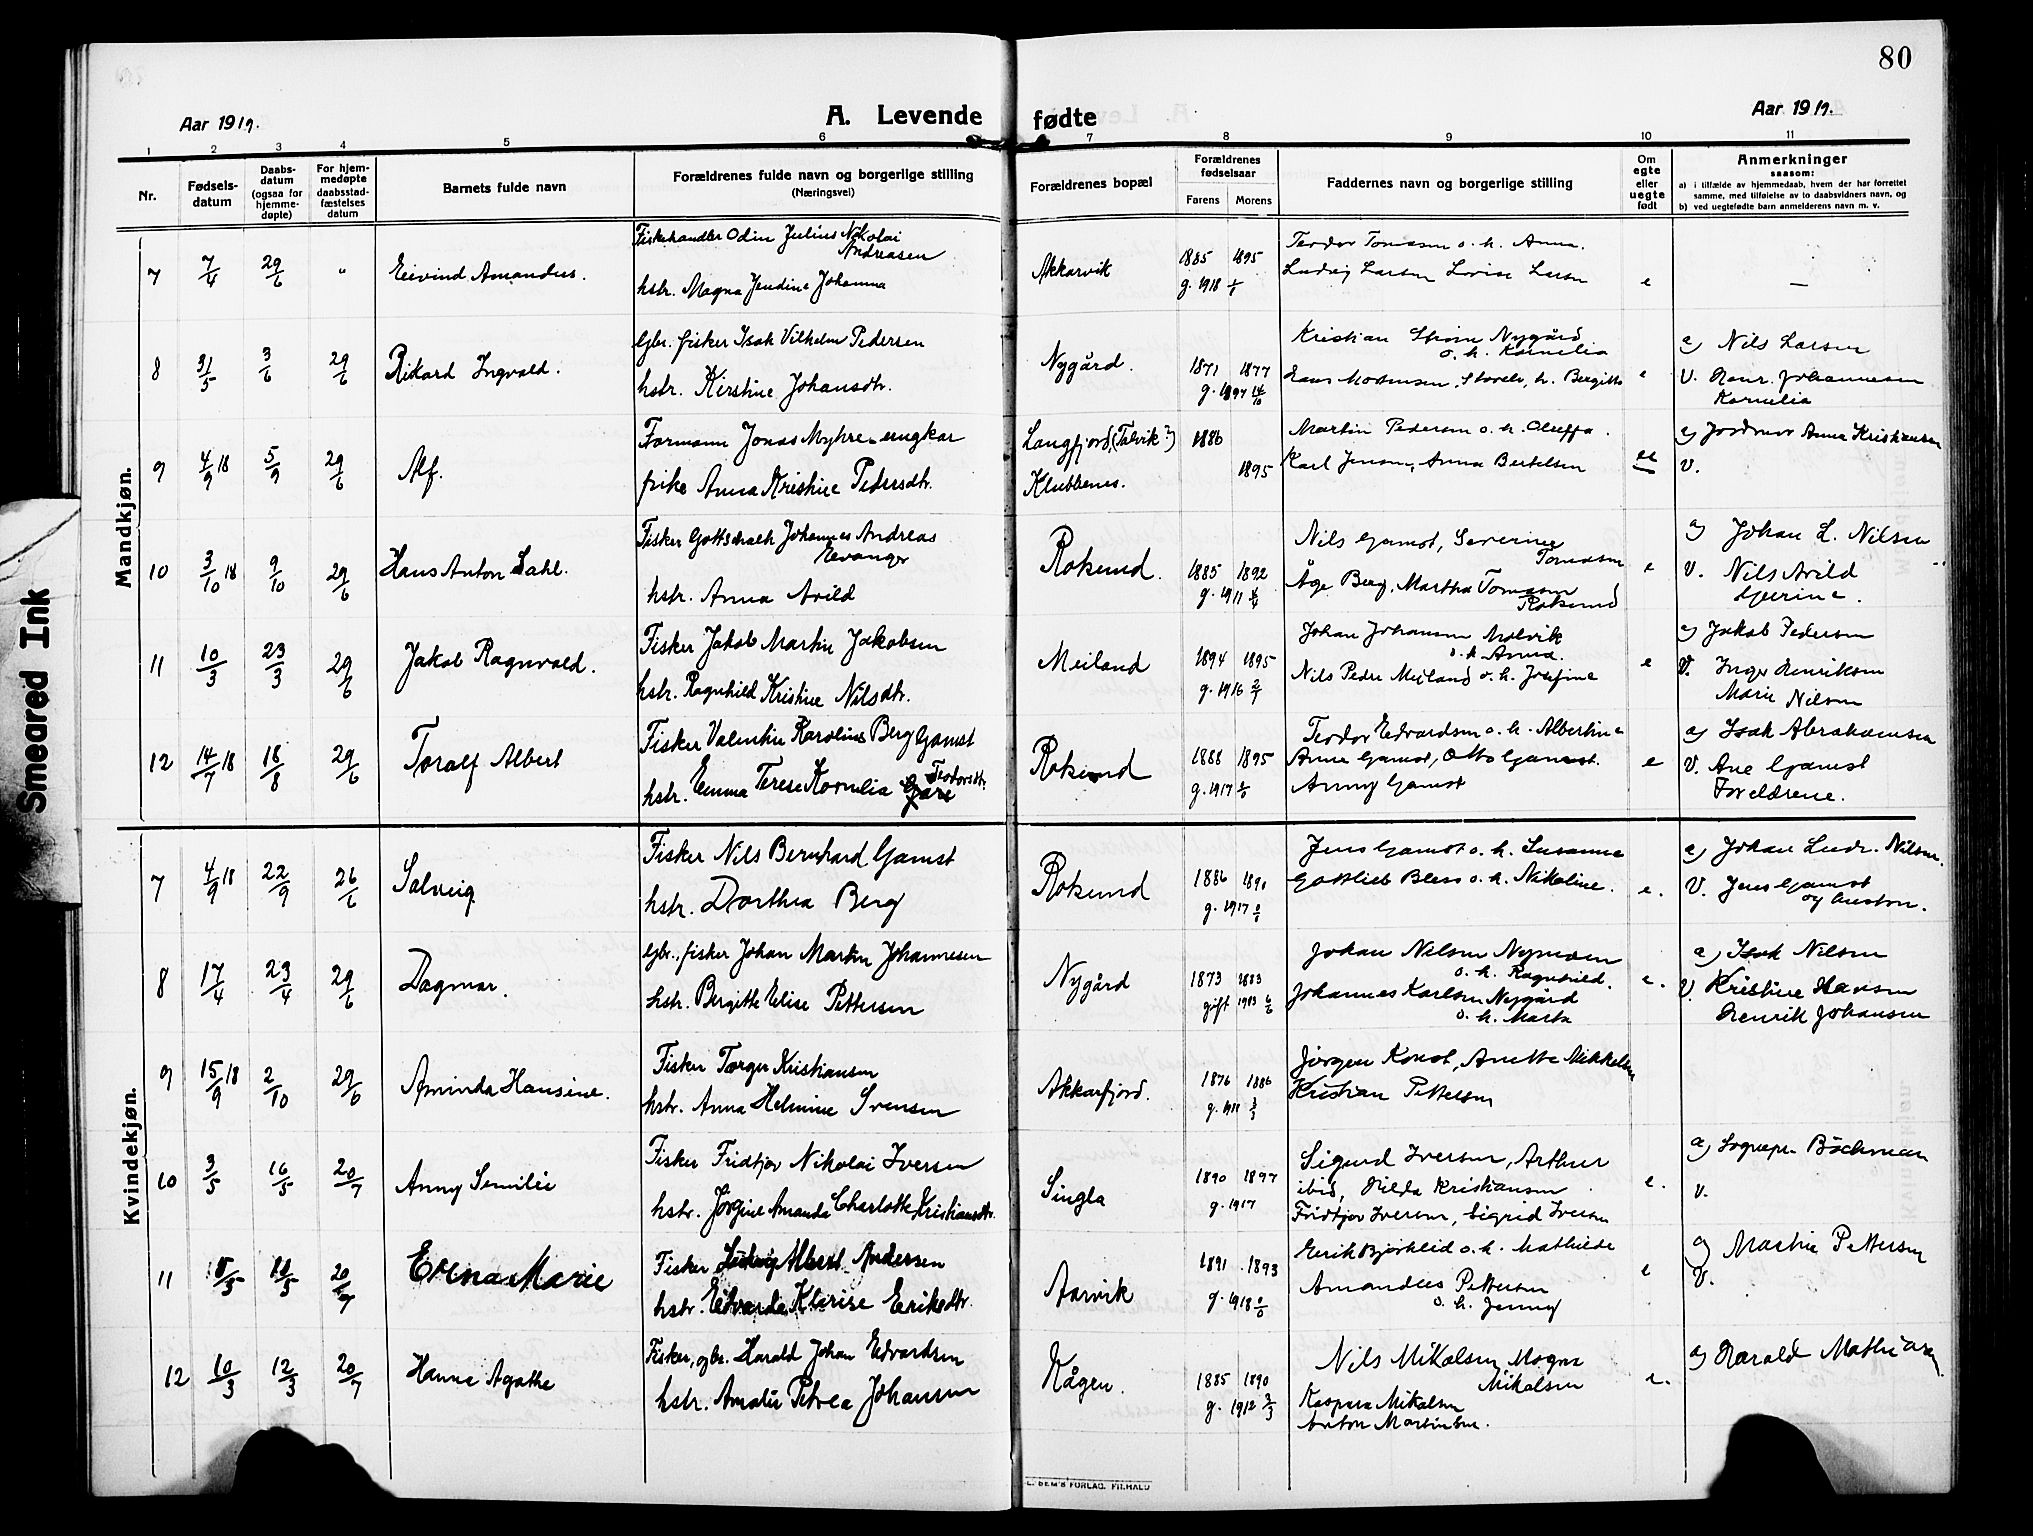 80
Aar 1919.
A. Levende fødte
Aar 1919.
1 2 3 4 5 6 7 8 9 10 11
Nr.
Fødsels-
datum
Daabs-
datum
(ogsaa for
hjemme-
døpte)
For hjem-
medøpte
daabsstad-
fæstelses
datum
Barnets fulde navn
Forældrenes fulde navn og borgerlige stilling
(Næringsvei)
Forældrenes bopæl
Forældrenes
fødselsaar
Farens Morens
Faddernes navn og borgerlige stilling
Om
egte
eller
uegte
født
Anmerkninger
saasom:
a) i tilfælde av hjemmedaab, hvem der har forrettet
samme, med tilføielse av to daabsvidners navn, og
b) ved uegtefødte barn anmelderens navn m. v.
Smeared Ink
Mandkjøn.
7 7/4 29/6 " Eivind Amandus.
Fiskehandler Odin Julius Nikolai
Andreasen
hstr. Magna Jendine Johanna
Akkarvik
1885 1895
g. 1918
Teodor Tomasen o. h. Anna.
Ludvig Larsen Lovise Larsen
e
—
8 31/5 3/6 29/6 Rikard Ingvald.
Gbr. fisker Isak Vilhelm Pedersen
hstr. Kirstine Johansdtr.
Nygård.
1871 1877
g. 1897 14/10
Kristian Strøm Nygård
o. h. Kornelia
Hans Mortensen, Storelv, h. Bergitte
e
a) Nils Larsen
V. Henr. Johannesen
Kornelia
9 4/9 18 5/9 29/6 Alf.
Formann Jonas Myhre - ungkar
pike Anna Kristine Pedersdtr.
Langfjord, (Talvik?)
Klubbenes.
1886
1895
Martin Pedersen o. h. Oluffa.
Karl Jensen, Anna Bertelsen
ue
a) Jordmor Anna Kristiansen
V.
10 3/10 18 9/10 29/6 Hans Anton Dahl.
Fisker Gottschalk Johannes Andreas
Evanger
hstr. Anna Arild
Roksund.
1885 1892
g. 1911
Nils Gamst, Severine
Tomasen
Åge Berg, Martha Tomasen
Roksund
e
a) Johan L. Nilsen
V. Nils Arild
11 10/3 23/3 29/6 Jakob Ragnvald.
Fisker Jakob Martin Jakobsen
hstr. Ragnhild Kristine Nilsdtr.
Meiland
1894 1895
g. 1916
Johan Johansen Molvik
o. h Anna.
Nils Peder Meiland o. h. Josefine
e
a) Jakob Pedersen
V. Inger Henriksen
Marie Nilsen
12 14/7 18 18/8 29/6 Toralf Albert
Fisker Valentin Karolius Berg Gamst
hstr. Emma Terese Kornelia Teodorsdtr.
Roksund
1888 1895
g. 1917
Teodor Edvardsen o. h. Albertine
Anna Gamst, Otto Gamst.
Anny Gamst
e
a) Isak Abrahamsen
V. Ane Gamst
Foreldrene.
Kvindekjøn.
7 4/9 18 22/9 26/6 Solveig
Fisker Nils Bernhard Gamst
hstr. Dorthea Berg
Roksund
1886 1890
g. 1917
Jens Gamst o. h. Susanna
Gottlieb Bless o. h. Nikoline.
e.
a) Johan Ludv. Nilsen.
V. Jens Gamst
og hustru.
8 17/4 23/4 29/6 Dagmar.
Gbr., fisker Johan Martin Johannesen
hstr. Bergitte Elise Pettersen
Nygård
1873 1883
gift 1903 6/6
Johan Nilsen Nymoen
o. h. Ragnhild.
Johannes Karlsen Nygård
o. h. Marta
e.
a) Isak Nilsen
V. Kristine Hansen
Henrik Johansen
9 15/9 18 2/10 29/6 Aminda Hansine.
Fisker Torger Kristiansen
hstr. Anna Helmine Svensen
Akkarfjord.
1876 1886
g. 1911 3/3
Jørgen Konst, Anette Mikkelsen
Kristian Pettersen
10 3/5 16/5 20/7 Anny Emilie
Fisker Fridtjov Nikolai Iversen
hstr. Jørgine Amanda Charlotte Kristiansdtr.
Singla
1890 1897
g. 1917
Sigurd Iversen, Arthur
ibid, Hilda Kristiansen
Fridtjov Iversen, Sigrid Iversen
e.
a) Sognepr. Böckman
V.
11 20/7 Erna Marie
Fisker Ludvig Albert Andersen
hstr. Edvarda Klarise Eriksdtr.
Aarvik
1891 1893
g. 1918
Erik Bjørklid o. h. Mathilde
Amandus Pettersen
o. h. Jenny
e
a) Martin Pettersen
V.
12 10/3 12/3 20/7 Hanna Agathe
Fisker, gbr. Harald Johan Edvardsen
hstr. Amalie Petrea Johansen
Kågen.
1885 1890
g. 1912 3/3
Nils Mikalsen, Magna
Mikalsen
Kaspara Mikalsen
Anton Martinsen.
e.
a) Harald Mathiasen